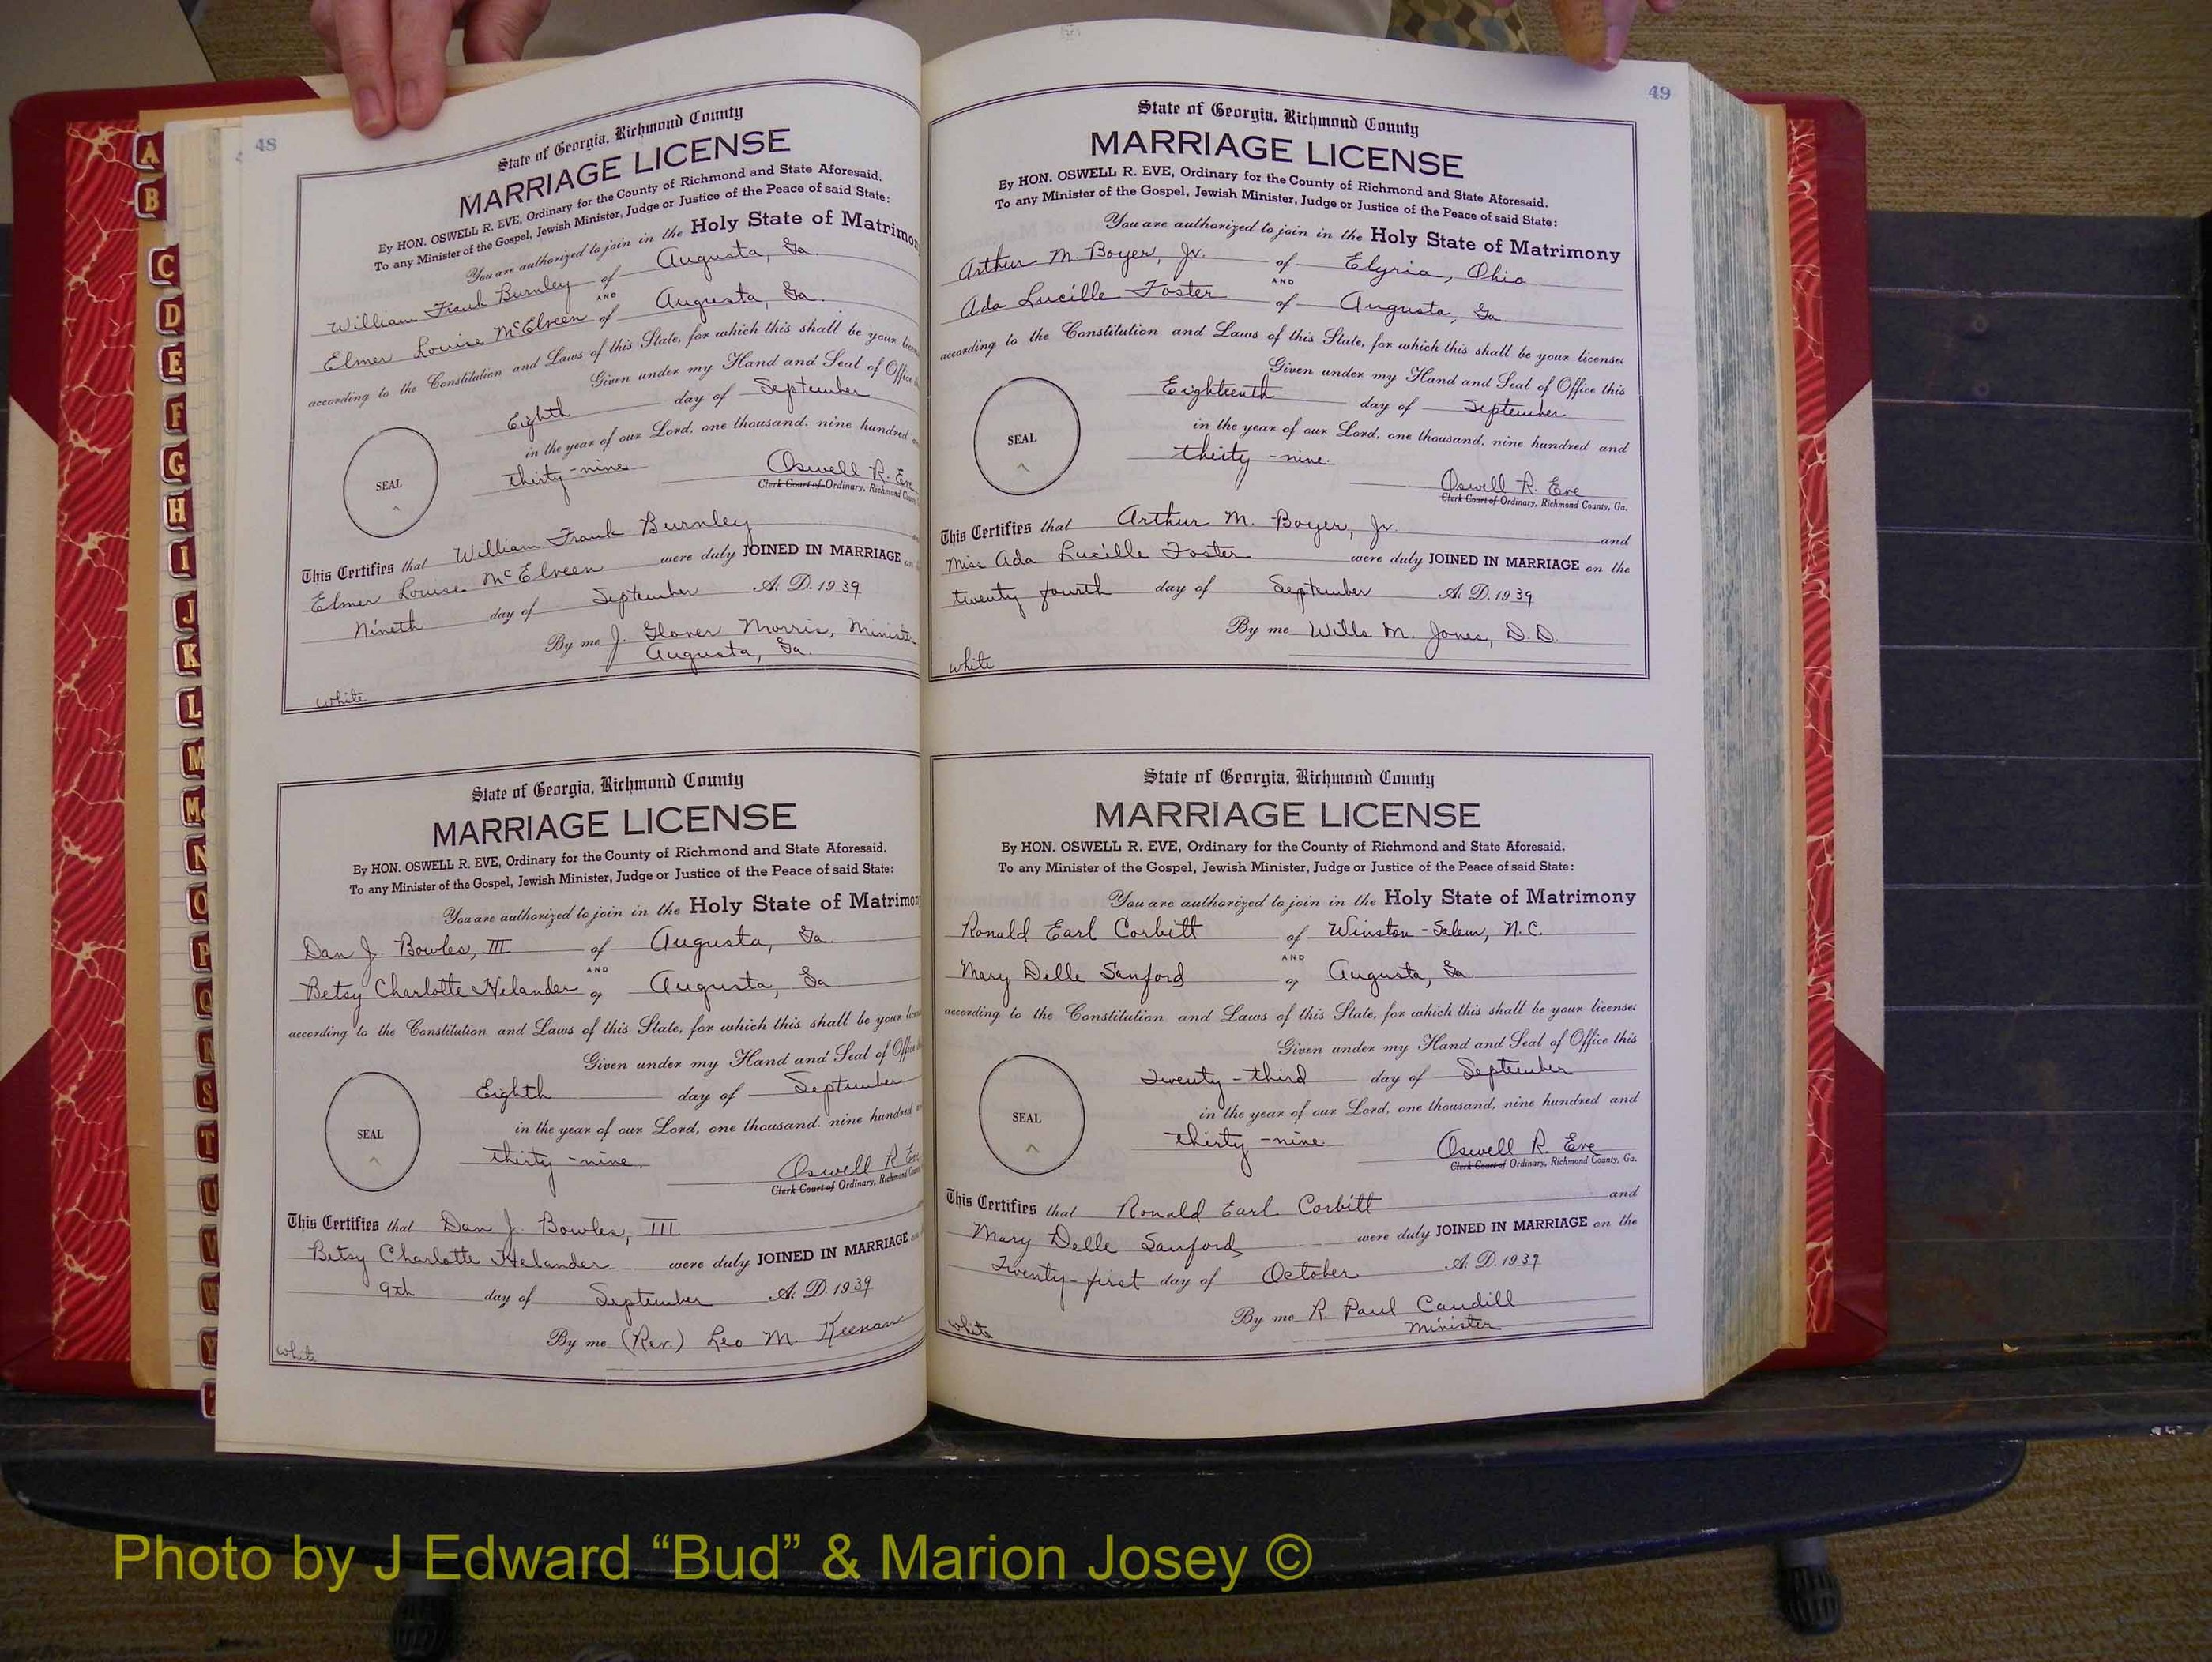 48
State of Georgia, Richmond County
MARRIAGE LICENSE
By HON. OSWELL R. EVE, Ordinary for the County of Richmond and State Aforesaid.
To any Minister of the Gospel, Jewish Minister, Judge or Justice of the Peace of said State:
You are authorized to join in the Holy State of
William Frank Burnley of Augusta, Ga.
AND
Elmer Louise McElveen of Augusta, Ga.
according to the Constitution and Laws of this State, for which this shall be your
Given under my Hand and Seal of Office
Eighth day of September
in the year of our Lord, one thousand, nine hundred
SEAL
thirty-nine
Oswell R. Eve
Clerk Court of Ordinary, Richmond
This Certifies that William Frank Burnley
Elmer Louise McElveen were duly JOINED IN MARRIAGE
Nineth day of September A. D. 1939
By me J. Glover Morris, Minister
Augusta, Ga.
White
State of Georgia, Richmond County
MARRIAGE LICENSE
By HON. OSWELL R. EVE, Ordinary for the County of Richmond and State Aforesaid.
To any Minister of the Gospel, Jewish Minister, Judge or Justice of the Peace of said State:
You are authorized to join in the Holy State of
Dan J. Bowles, III of Augusta, Ga.
AND
Betsy Charlotte Helander of Augusta, Ga
according to the Constitution and Laws of this State, for which this shall be your
Given under my Hand and Seal of
Eighth day of September
in the year of our Lord, one thousand, nine hundred
SEAL
thirty-nine.
Oswell R Eve
Clerk Court of Ordinary, Richmond
This Certifies that Dan J. Bowles, III
Betsy Charlotte Helander were duly JOINED IN MARRIAGE
9th day of September A. D. 1939
By me (Rev.) Leo M. Keenan
White
49
State of Georgia, Richmond County
MARRIAGE LICENSE
By HON. OSWELL R. EVE, Ordinary for the County of Richmond and State Aforesaid.
To any Minister of the Gospel, Jewish Minister, Judge or Justice of the Peace of said State:
You are authorized to join in the Holy State of Matrimony
Arthur M. Boyer, Jr. of Elyria, Ohio
AND
Ada Lucille Foster of Augusta, Ga
according to the Constitution and Laws of this State, for which this shall be your license:
Given under my Hand and Seal of Office this
Eighteenth day of September
in the year of our Lord, one thousand, nine hundred and
SEAL
thirty-nine.
Oswell R. Eve
Clerk Court of Ordinary, Richmond County, Ga.
This Certifies that Arthur M. Boyer, Jr. and
Miss Ada Lucille Foster were duly JOINED IN MARRIAGE on the
twenty fourth day of September A. D. 1939
By me Wills M. Jones, D.D.
White
State of Georgia, Richmond County
MARRIAGE LICENSE
By HON. OSWELL R. EVE, Ordinary for the County of Richmond and State Aforesaid.
To any Minister of the Gospel, Jewish Minister, Judge or Justice of the Peace of said State:
You are authorized to join in the Holy State of Matrimony
Ronald Earl Corbitt of Winston-Salem, N.C.
AND
Mary Delle Sanford of Augusta, Ga.
according to the Constitution and Laws of this State, for which this shall be your license:
Given under my Hand and Seal of Office this
Twenty-third day of September
in the year of our Lord, one thousand, nine hundred and
SEAL
thirty-nine
Oswell R. Eve
Clerk Court of Ordinary, Richmond County, Ga.
This Certifies that Ronald Earl Corbitt and
Mary Delle Sanford were duly JOINED IN MARRIAGE on the
Twenty-first day of October A. D. 1939
By me R. Paul Caudill
Minister
White
A
B
C
D
E
F
G
H
I
J
K
L
M
Mc
N
O
P
Q
R
S
T
U
V
W
Y
Z
Photo by J Edward “Bud” & Marion Josey ©